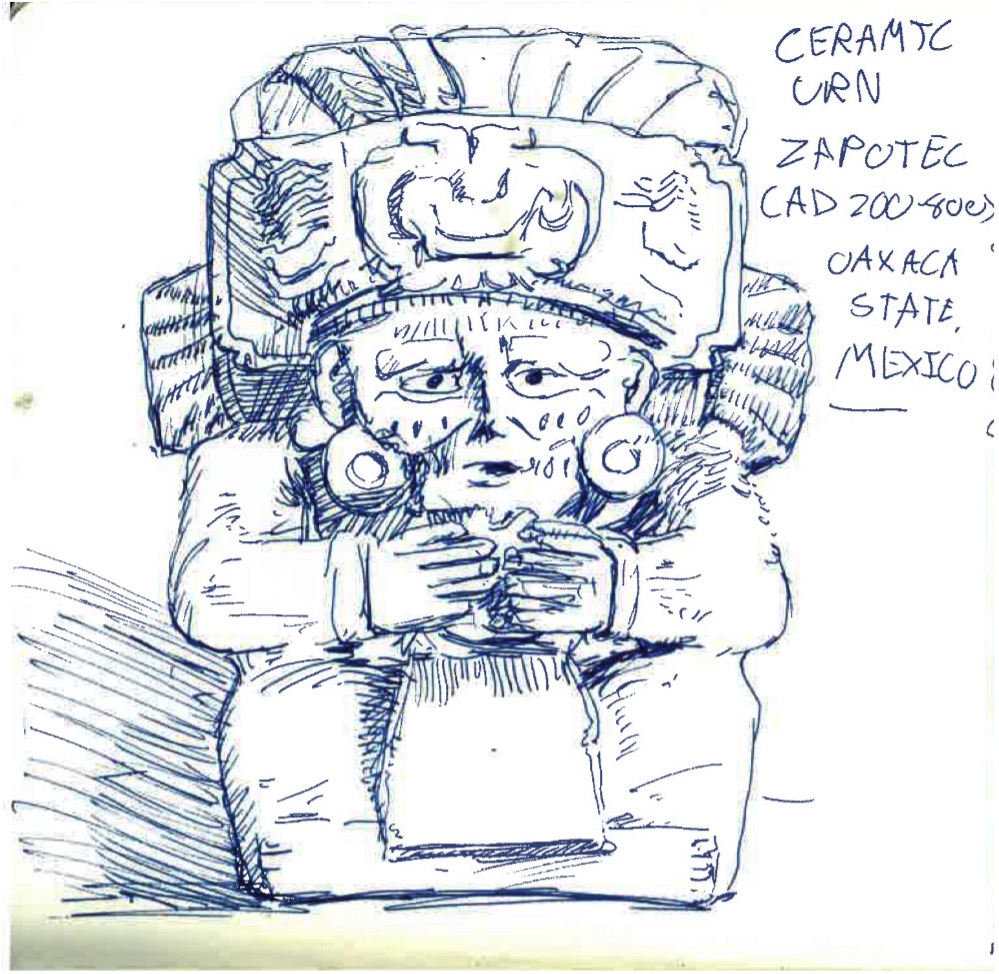 CERAMIC
URN
ZAPOTEC
CAD 200-800>
OAXACA
STATE,
MEXICO